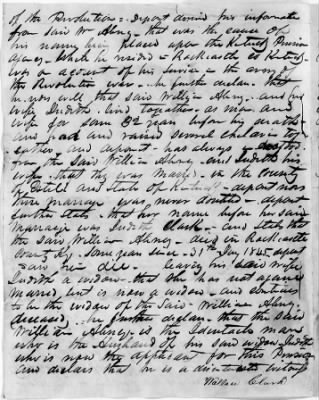 of the Revolution = deponent derived his information
from said Wm Abney = that was the cause of
his name being placed upon the Kentucky Pension
Agency = while he resided in Rockcastle Co Kentucky
was on account of his service in the army of
the Revolution war = he further declare that
he was well that said William Abney and his
wife Judith lived together as man and
wife for some years before his death =
and had and raised several children to
gether and deponent has always understood
from the said William Abney and Judith his
wife = that they was married in the County
of Estill and State of Kentucky = deponent
their marriage was never doubted = deponent
further states that her name before her said
marriage was Judith Clark = and states that
the said William Abney = died in Rockcastle
County Ky. some year since = 31st 1845
saw him die = leaving his said wife
Judith a widow = that she has not again
married but is now a widow = and continues
to be the widow of the said William Abney
deceased = he further declare that the said
William Abney is the Identacle man
who is the husband of his said widow Judith
who is now the applicant for this Pension
and declares that he is a disinterested witness
Wallace Clark